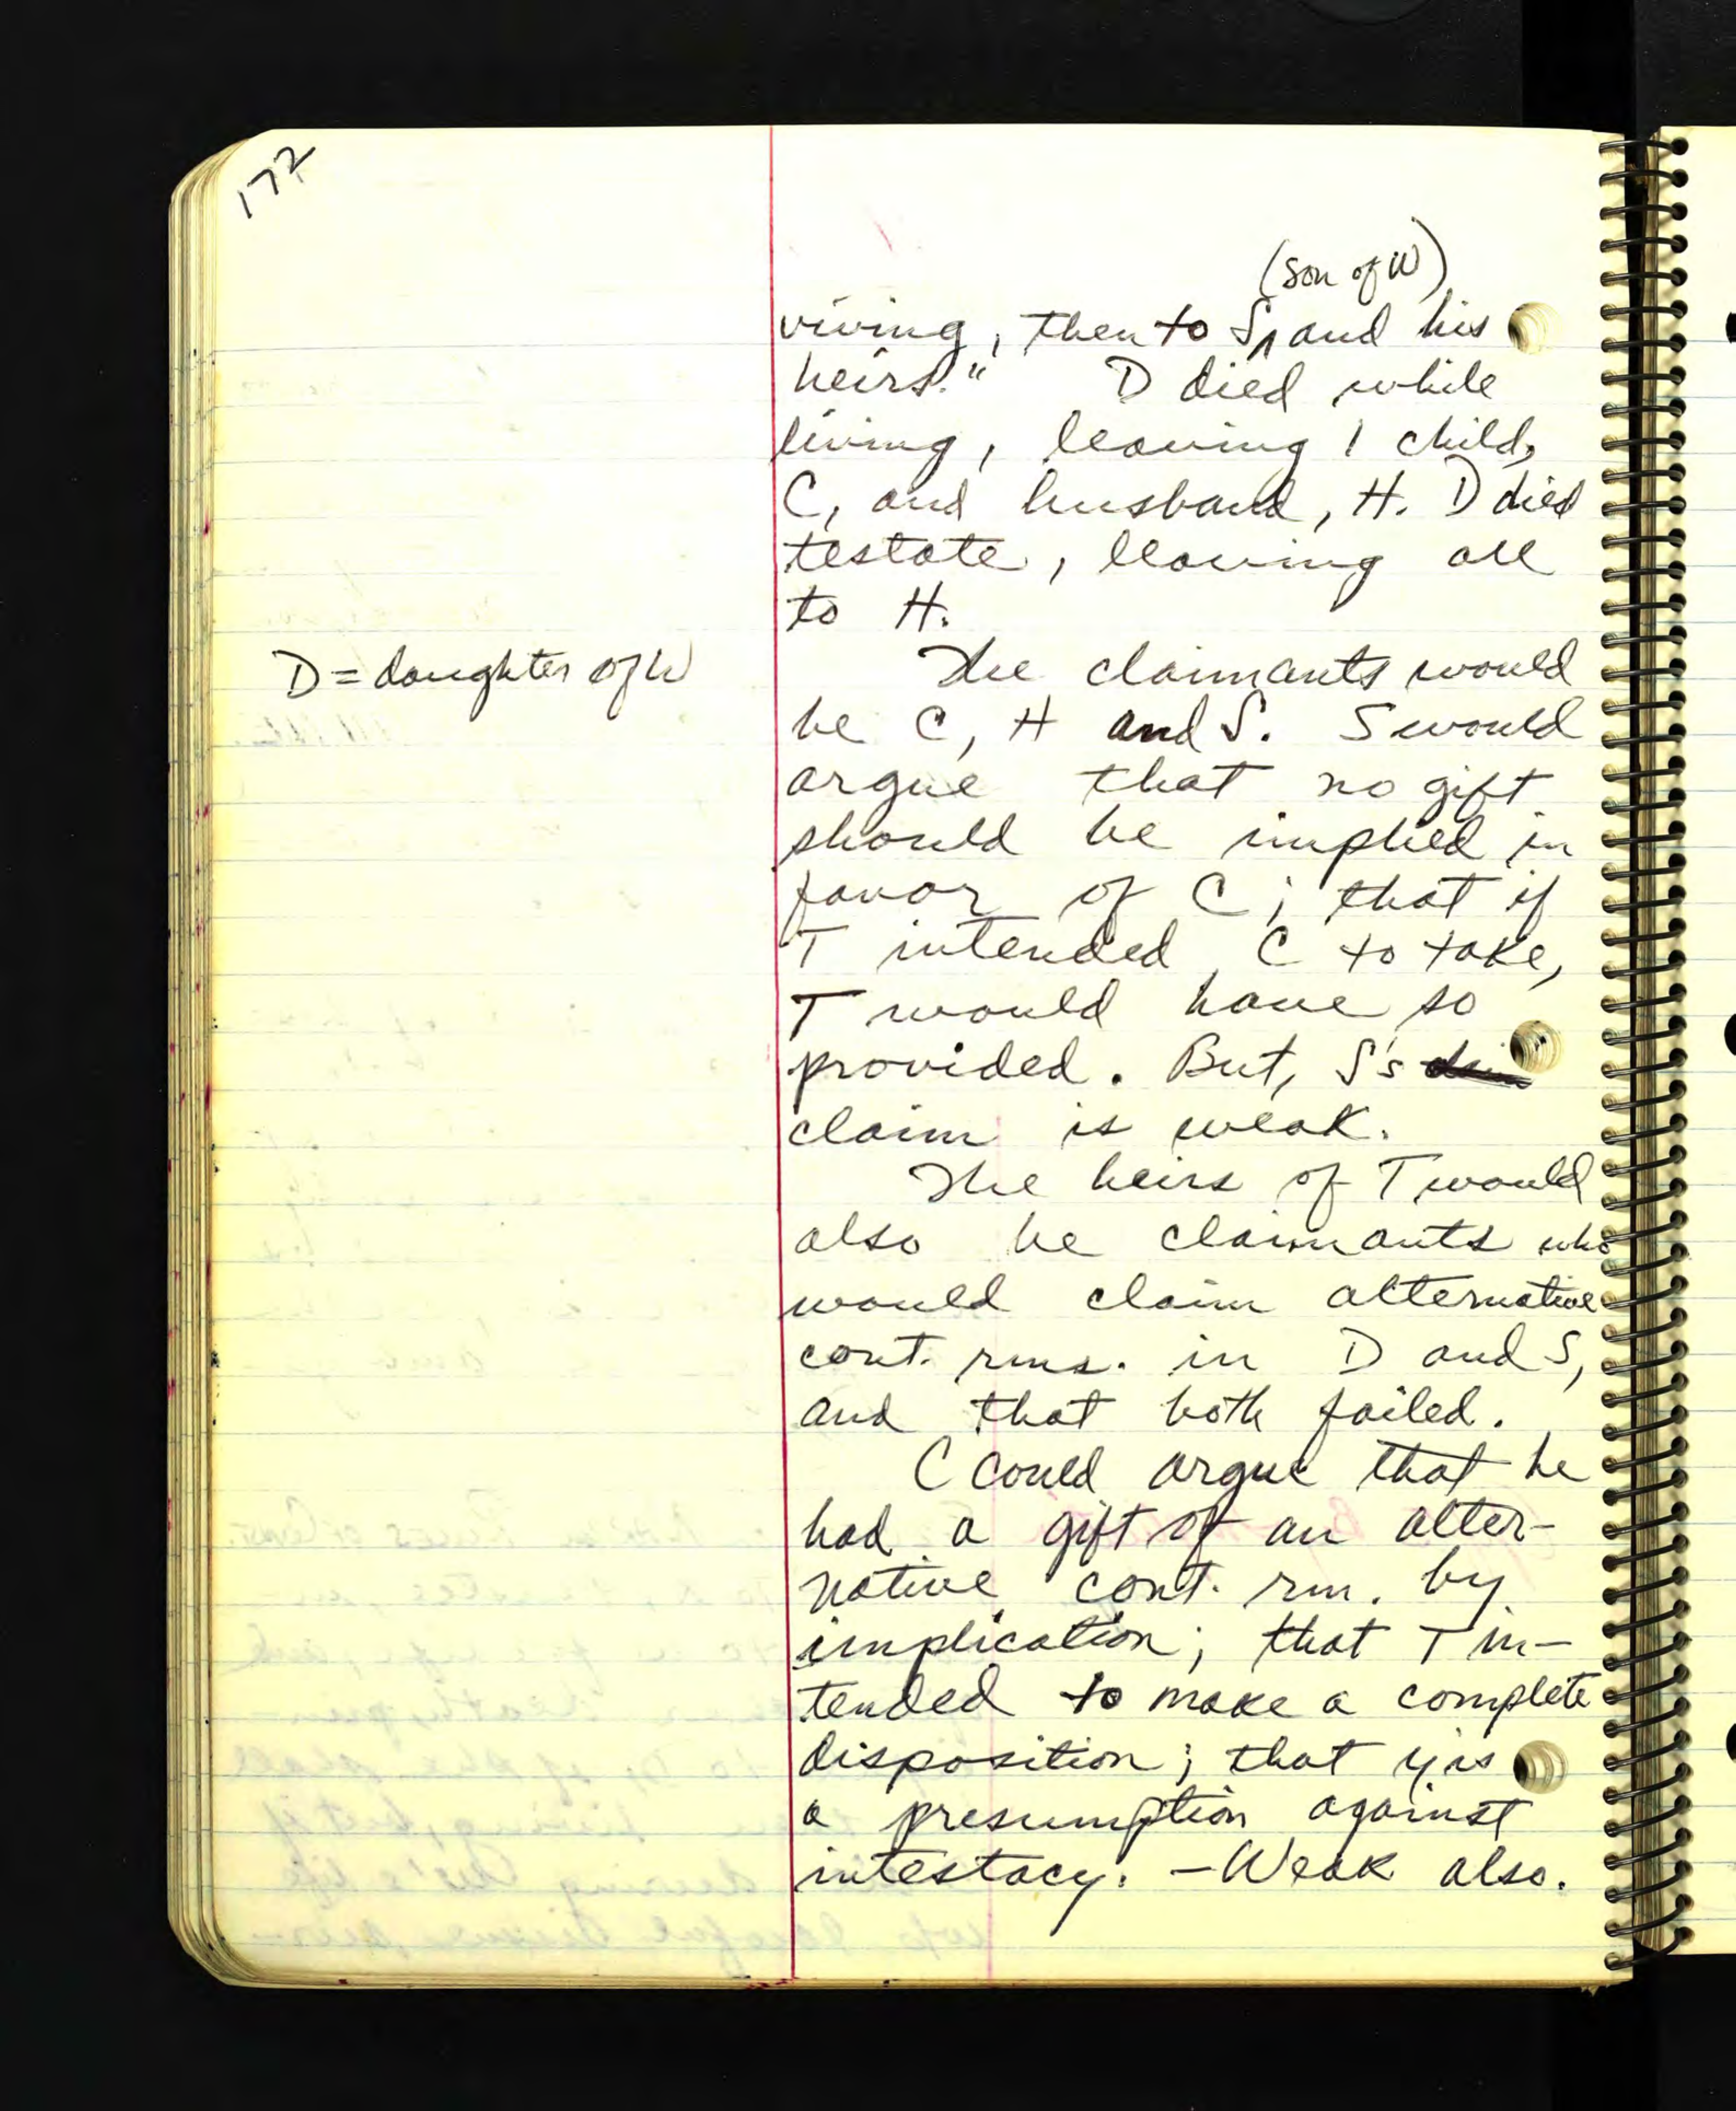 172
(son of W)
viving, then to S, and his
heirs." D died while
living, leaving 1 child,
C, and husband, H. D died
testate, leaving all
to H.
D = daughter of W
The claimants would
be C, H and S. S would
argue that no gift
should be implied in
favor of C; that if
T intended C to take,
T would have so
provided. But, S's
claim is weak.
The heirs of T would
also be claimants who
would claim alternative
cont. rms. in D and S,
and that both failed.
C could argue that he
had a gift of an alter-
native cont. rm. by
implication; that T in-
tended to make a complete
disposition; that y is
a presumption against
intestacy. - Weak also.